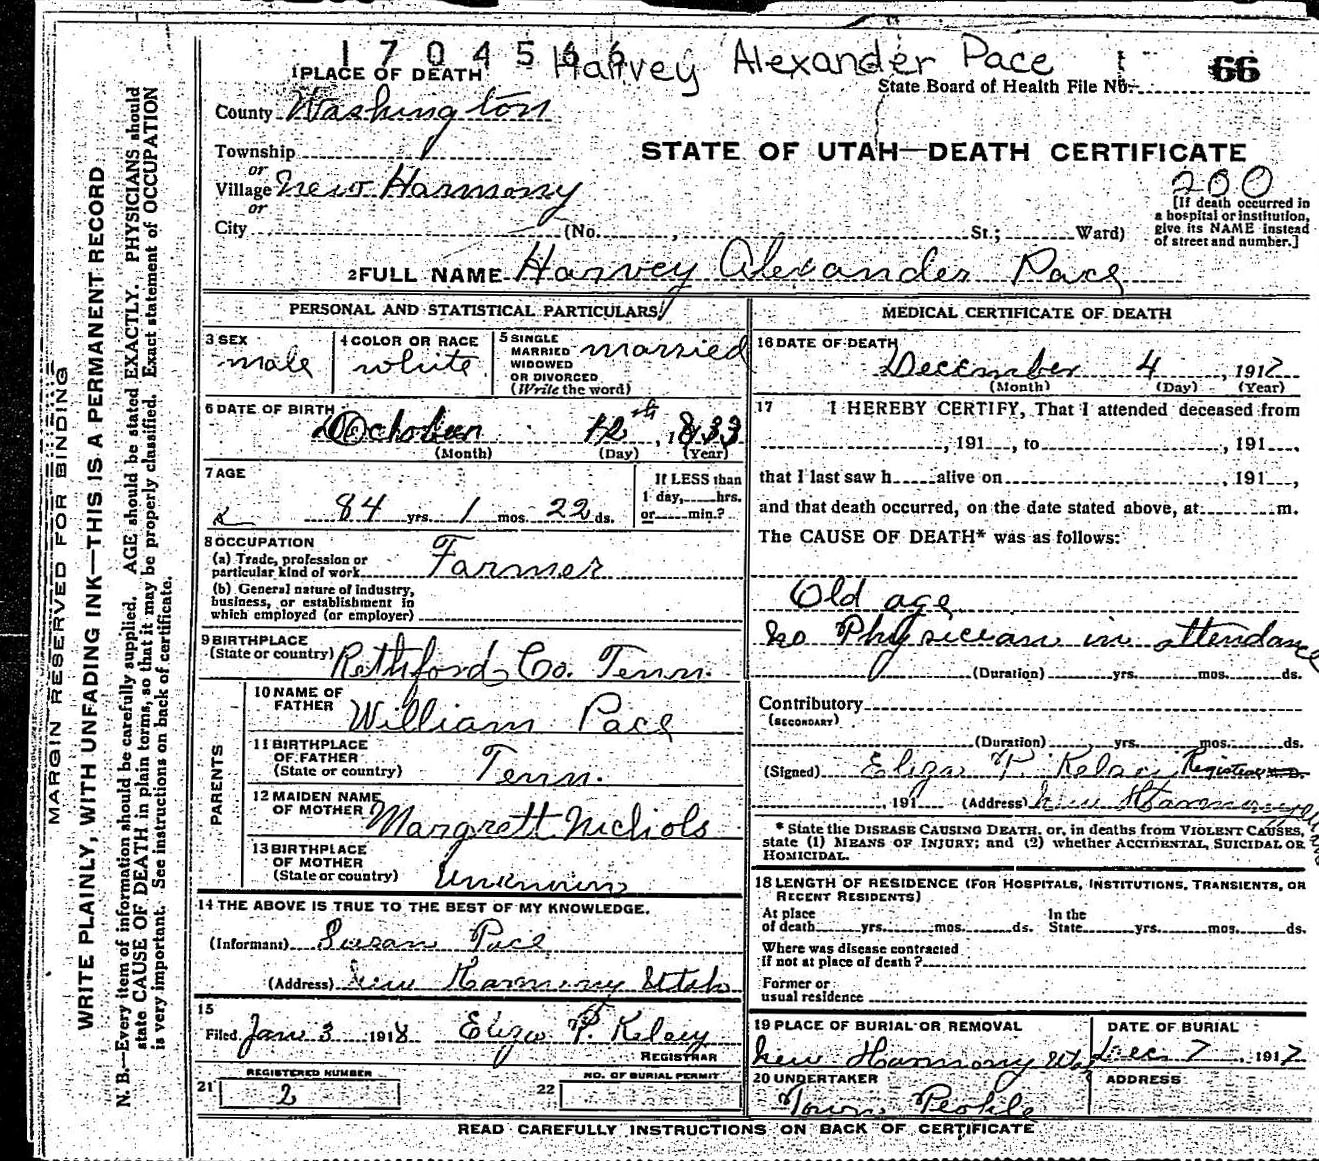 1 7 0 4 5 6 6 Harvey Alexander Pace 66
1 PLACE OF DEATH
State Board of Health File No.
County Washington
STATE OF UTAH—DEATH CERTIFICATE
Township
or
Village New Harmony
200
or
City (No. , St.; Ward)
[If death occurred in
a hospital or institution,
give its NAME instead
of street and number.]
2 FULL NAME Harvey Alexander Pace
PERSONAL AND STATISTICAL PARTICULARS
3 SEX
male
4 COLOR OR RACE
white
5 SINGLE
MARRIED
WIDOWED
OR DIVORCED
(Write the word)
married
6 DATE OF BIRTH
October 12th, 1833
(Month) (Day) (Year)
7 AGE
84 yrs. 1 mos. 22 ds.
If LESS than
1 day, hrs.
or min.?
8 OCCUPATION
(a) Trade, profession or
particular kind of work Farmer
(b) General nature of industry,
business, or establishment in
which employed (or employer)
9 BIRTHPLACE
(State or country) Rethford Co. Tenn.
PARENTS
10 NAME OF
FATHER
William Pace
11 BIRTHPLACE
OF FATHER
(State or country)
Tenn.
12 MAIDEN NAME
OF MOTHER
Margrett Nichols
13 BIRTHPLACE
OF MOTHER
(State or country)
Unknown
14 THE ABOVE IS TRUE TO THE BEST OF MY KNOWLEDGE.
(Informant) Susan Pace
(Address) New Harmony Utah
15
Filed Jan 3 1918 Eliza P. Kelsey
REGISTRAR
REGISTERED NUMBER
21 2
NO. OF BURIAL PERMIT
22
MEDICAL CERTIFICATE OF DEATH
16 DATE OF DEATH
December 4, 1917
(Month) (Day) (Year)
17 I HEREBY CERTIFY, That I attended deceased from
, 191 , to , 191 ,
that I last saw h alive on , 191 ,
and that death occurred, on the date stated above, at m.
The CAUSE OF DEATH* was as follows:
Old age
no Physician in attendance
(Duration) yrs. mos. ds.
Contributory
(SECONDARY)
(Duration) yrs. mos. ds.
(Signed) Eliza P. Kelsey Registrar M.D.
, 191 (Address) New Harmony Utah
* State the DISEASE CAUSING DEATH, or, in deaths from VIOLENT CAUSES,
state (1) MEANS OF INJURY; and (2) whether ACCIDENTAL, SUICIDAL OR
HOMICIDAL.
18 LENGTH OF RESIDENCE (FOR HOSPITALS, INSTITUTIONS, TRANSIENTS, OR
RECENT RESIDENTS)
At place
of death yrs. mos. ds.
In the
State yrs. mos. ds.
Where was disease contracted
If not at place of death?
Former or
usual residence
19 PLACE OF BURIAL OR REMOVAL
New Harmony Uta
DATE OF BURIAL
Dec. 7, 1917
20 UNDERTAKER
Town People
ADDRESS
READ CAREFULLY INSTRUCTIONS ON BACK OF CERTIFICATE
MARGIN RESERVED FOR BINDING
WRITE PLAINLY, WITH UNFADING INK—THIS IS A PERMANENT RECORD
N. B.—Every item of information should be carefully supplied. AGE should be stated EXACTLY. PHYSICIANS should
state CAUSE OF DEATH in plain terms, so that it may be properly classified. Exact statement of OCCUPATION
is very important. See instructions on back of certificate.